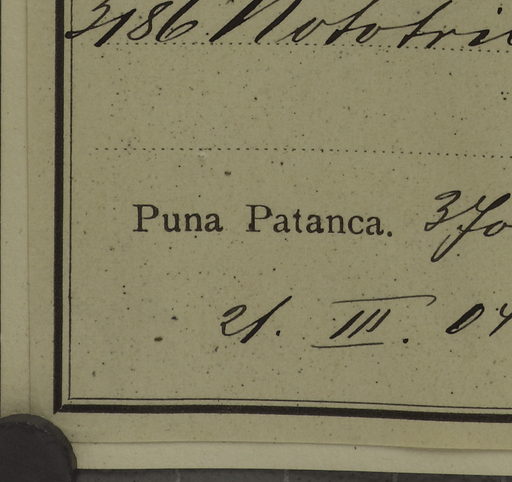 3186 Nototri
Puna Patanca. 370
21. III. 04